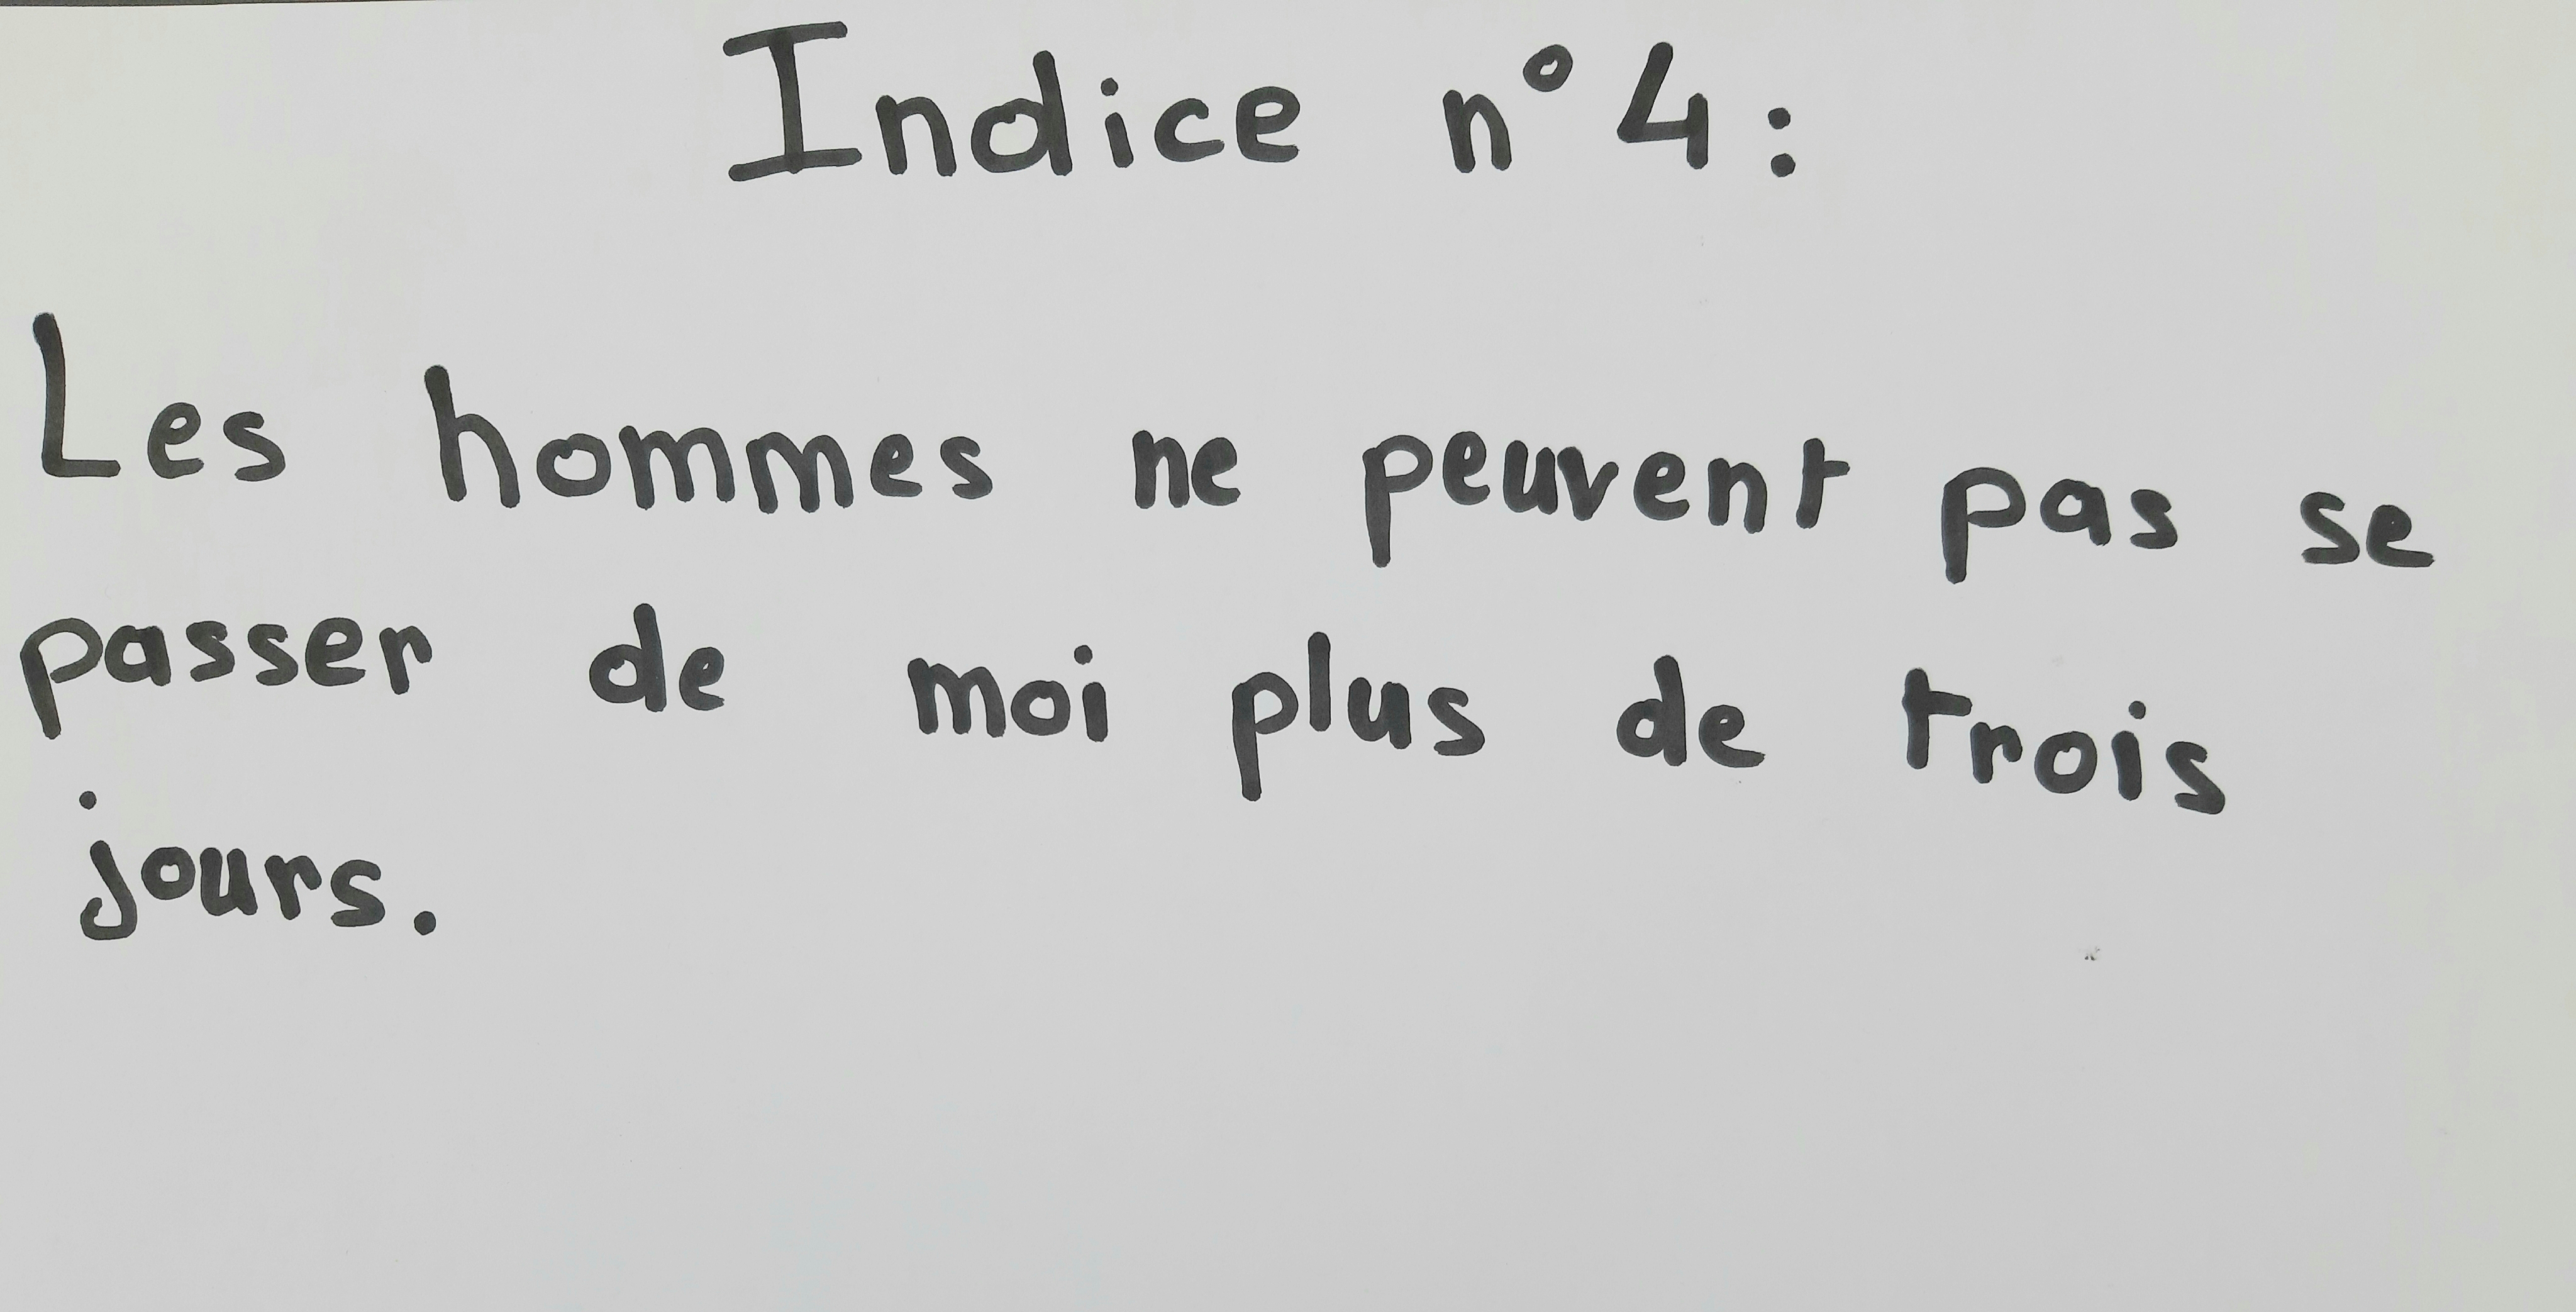 Indice n°4:
Les hommes ne peuvent pas se
passer de moi plus de trois
jours.